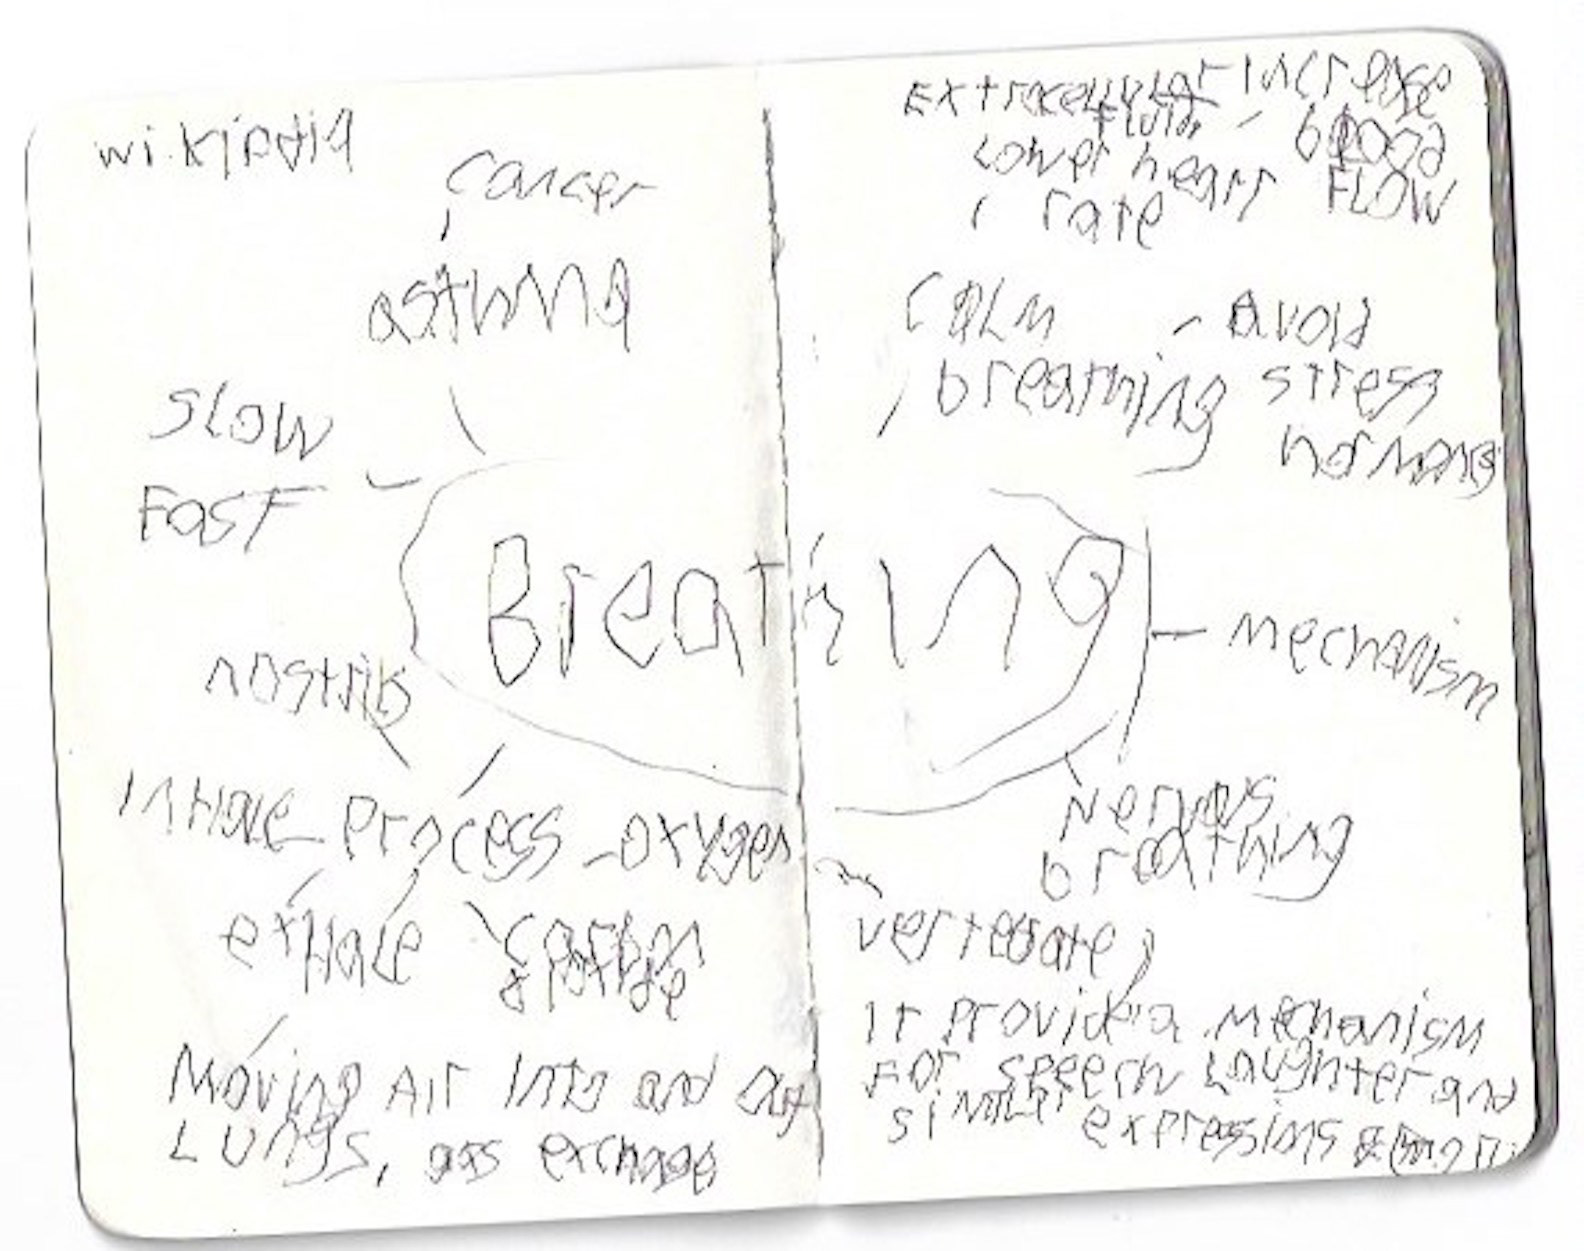 wikipedia
cancer
asthma
SLOW
FAST
nostrils
INHALE process - oxygen
exHale carbon
dioxide
Moving Air Into and out
Lungs, gas exchage
Extracellular increase
Fluid - blood
Lower heart FLOW
rate
CALM - avoid
breathing stress
hormons
Breathing
- mechanism
Nervous
breathing
vertebrate,
It provide a mechanism
For speech Laughter and
similar expressions